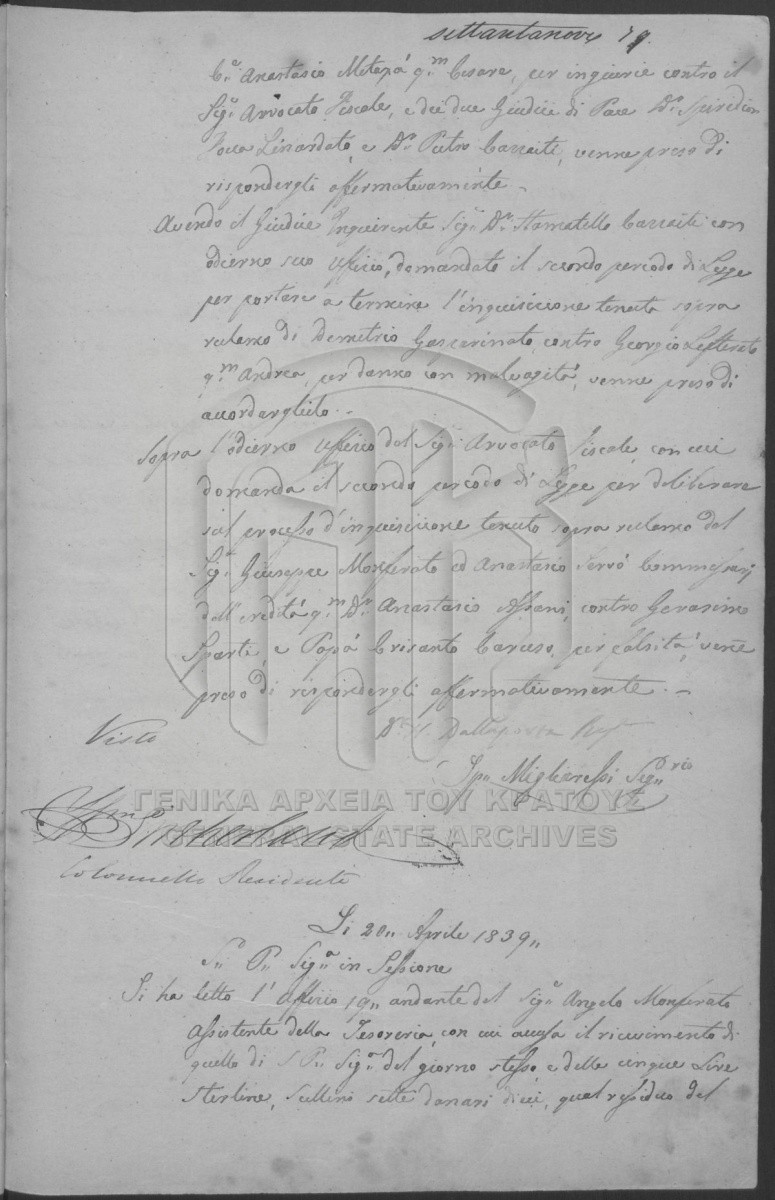 settantanove 79.
C.e Anastasio Metaxá q.m Cesare, per ingiurie contro il
Sig.r Avvocato Fiscale, e dei due Giudici di Pace D.r Spiridion
Focca Linardato, e D.r Pietro Carraiti, venne preso di
rispondergli affermativamente. –
Avendo il Giudice Inquirente Sig.r D.r Stamatello Carraiti con
odierno suo Ufficio, domandato il secondo periodo di Legge
per portare a termine l'inquisizione tenuta sopra
reclamo di Demetrio Gasparinato, contro Georgio Lefterato
q.m Andrea, per danno con malvagità, venne preso di
accordarglielo. –
Sopra l'odierno Ufficio del Sig.r Avvocato Fiscale, con cui
domanda il secondo periodo di Legge per deliberare
sul processo d'inquisizione tenuto sopra reclamo del
Sig.r Giuseppe Monferato ed Anastasio Servó Commissarj
dell'eredità q.m D.r Anastasio Assani, contro Gerasimo
Sparti, e Papá Crisanto Caruso, per falsità, venne
preso di rispondergli affermativamente. –
Visto
D.r Dallaporta
Migliaressi Seg.rio
ΓΕΝΙΚΑ ΑΡΧΕΙΑ ΤΟΥ ΚΡΑΤΟΥΣ
GENERAL STATE ARCHIVES
Colonnello Residente
Li 20,, Aprile 1839,,
S.a P.a Sig.a in Sessione
Si ha letto l'Ufficio 19,, andante del Sig.r Angelo Monferato
Assistente della Tesoreria, con cui accusa il ricevimento di
quello di S.a P.a Sig.a del giorno stesso, e delle cinque Lire
Sterline, Scellini sette danari dieci, qual residuo del